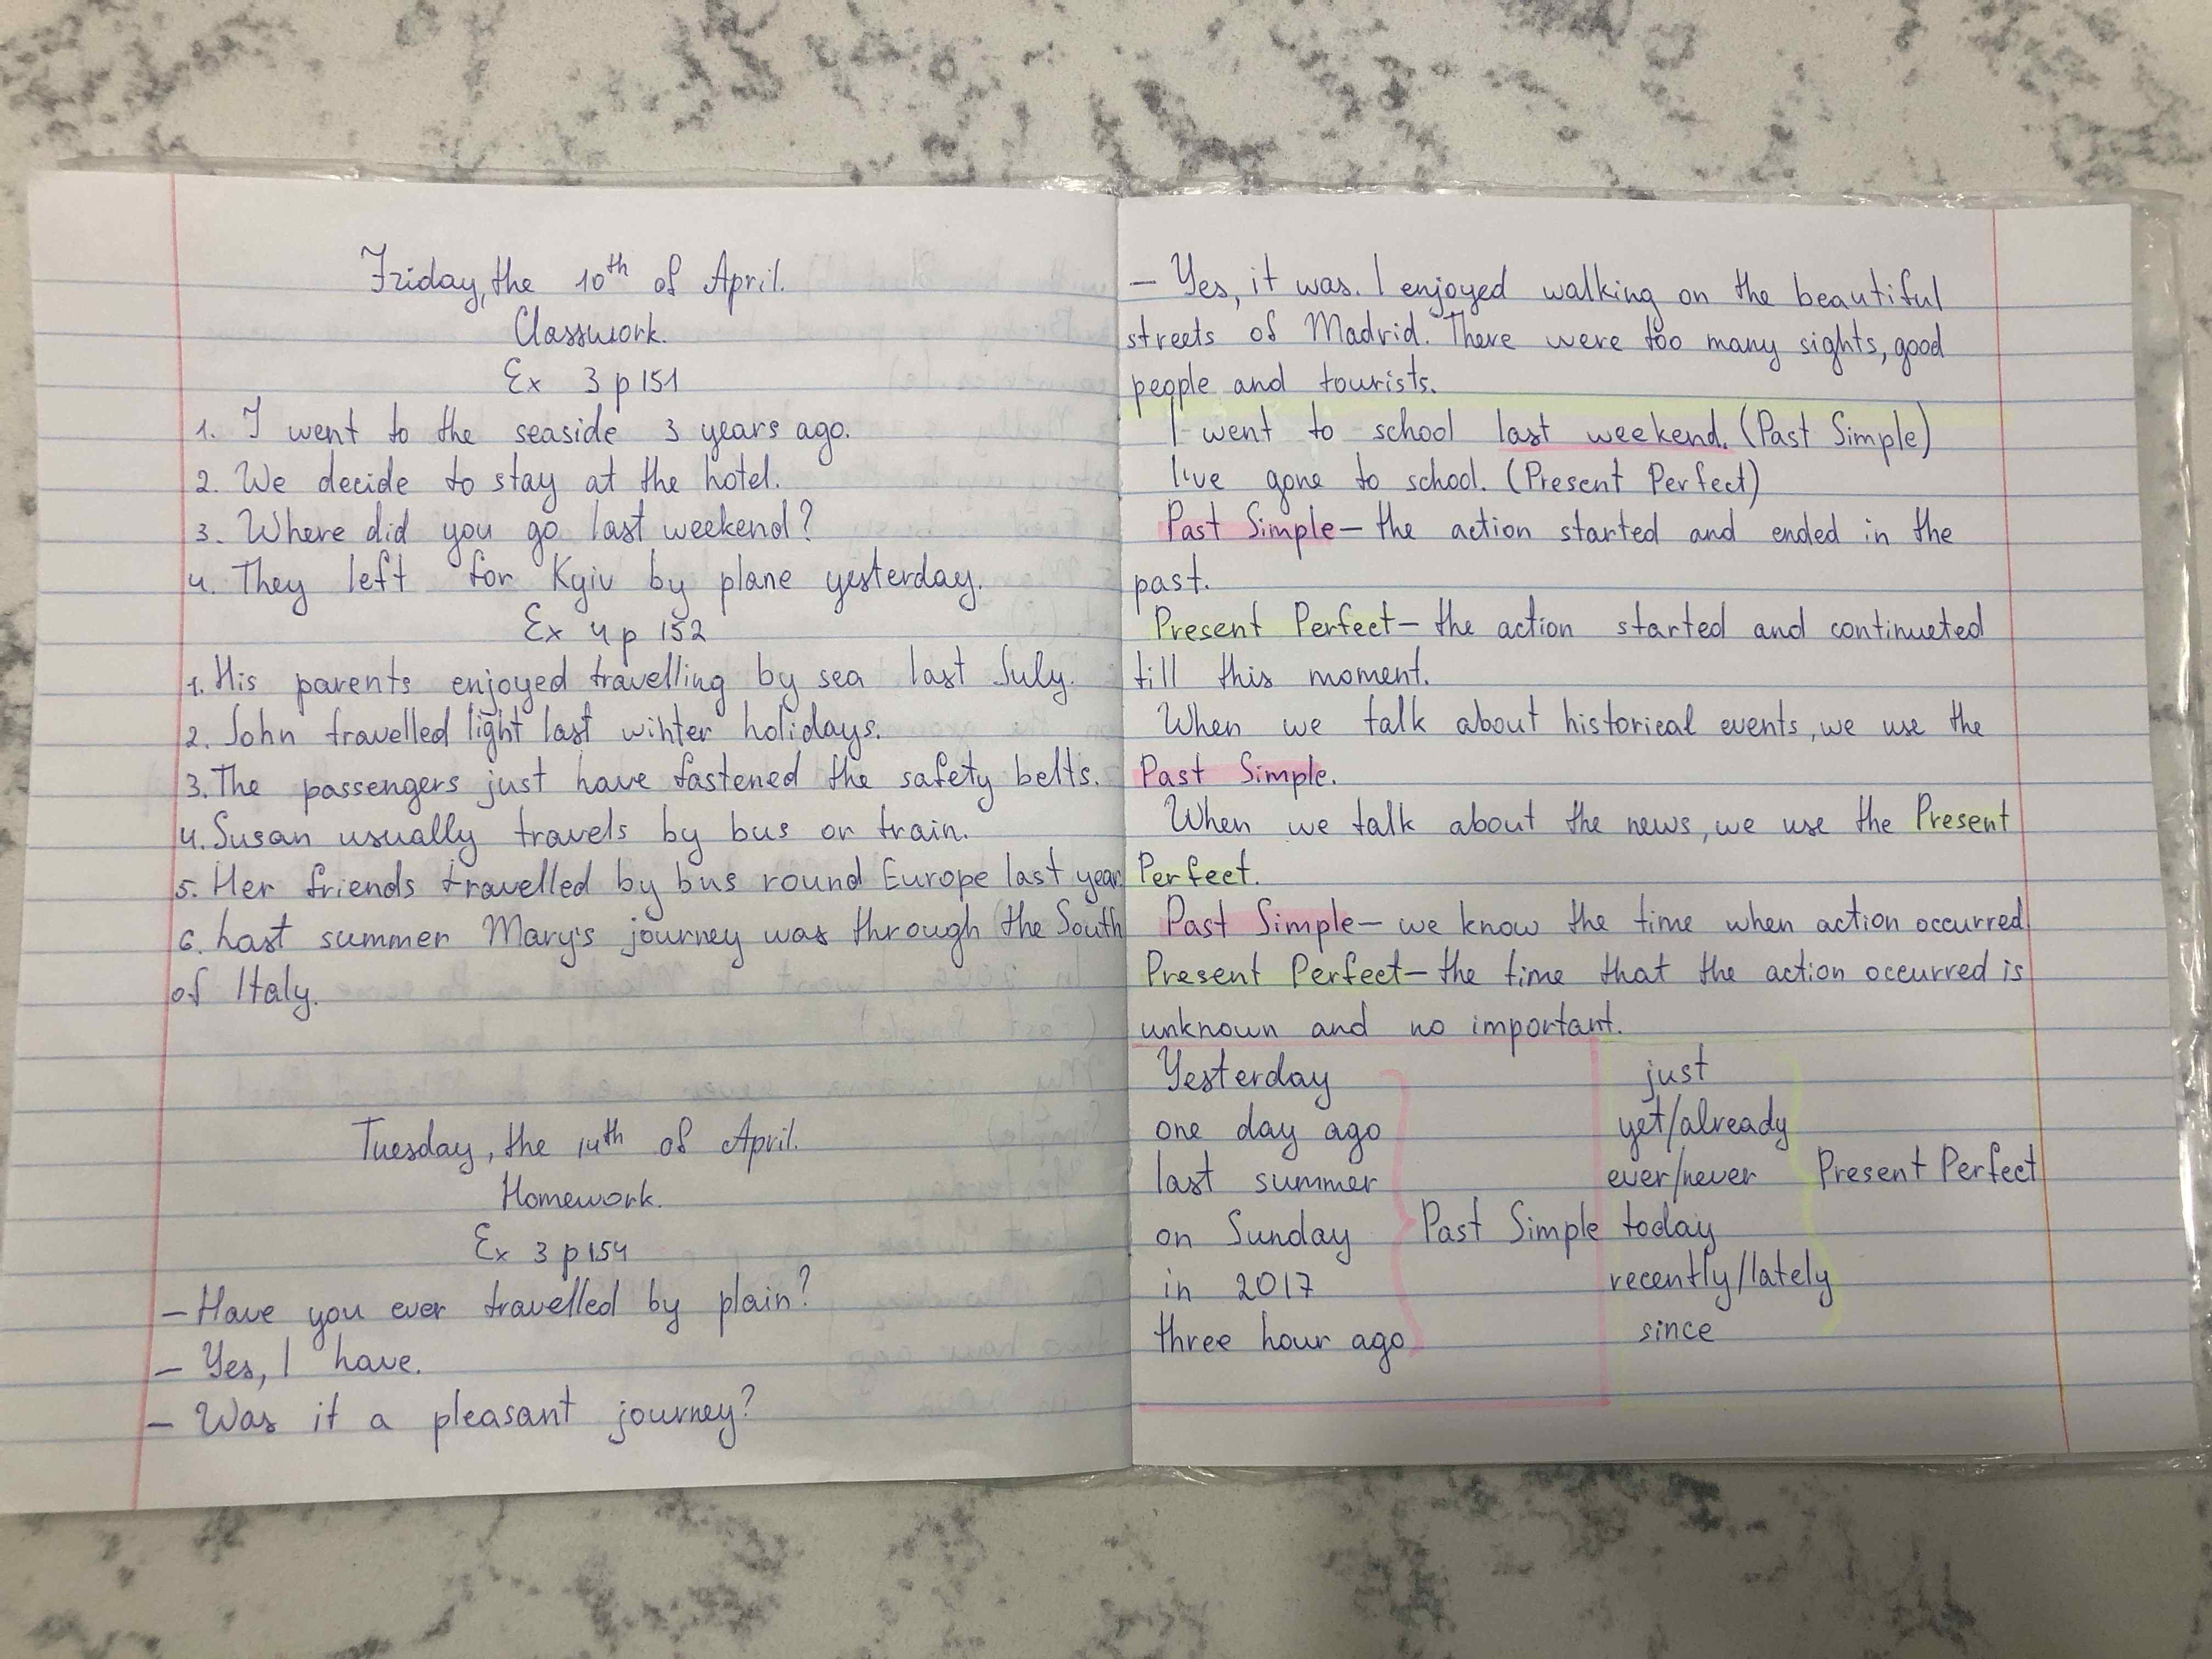 Friday, the 10th of April.
Classwork.
Ex 3 p 151
1. I went to the seaside 3 years ago.
2. We decide to stay at the hotel.
3. Where did you go last weekend?
4. They left for Kyiv by plane yesterday.
Ex 4 p 152
1. His parents enjoyed travelling by sea last July.
2. John travelled light last winter holidays.
3. The passengers just have fastened the safety belts.
4. Susan usually travels by bus or train.
5. Her friends travelled by bus round Europe last year.
6. Last summer Mary's journey was through the South
of Italy.
Tuesday, the 14th of April.
Homework.
Ex 3 p 154
- Have you ever travelled by plain?
- Yes, I have.
- Was it a pleasant journey?
- Yes, it was. I enjoyed walking on the beautiful
streets of Madrid. There were too many sights, good
people and tourists.
I went to school last weekend. (Past Simple)
I've gone to school. (Present Perfect)
Past Simple - the action started and ended in the
past.
Present Perfect - the action started and continueted
till this moment.
When we talk about historical events, we use the
Past Simple.
When we talk about the news, we use the Present
Perfect.
Past Simple - we know the time when action occurred
Present Perfect - the time that the action occurred is
unknown and no important.
Yesterday
one day ago
last summer
on Sunday Past Simple
in 2017
three hour ago
just
yet/already
ever/never Present Perfect
today
recently/lately
since